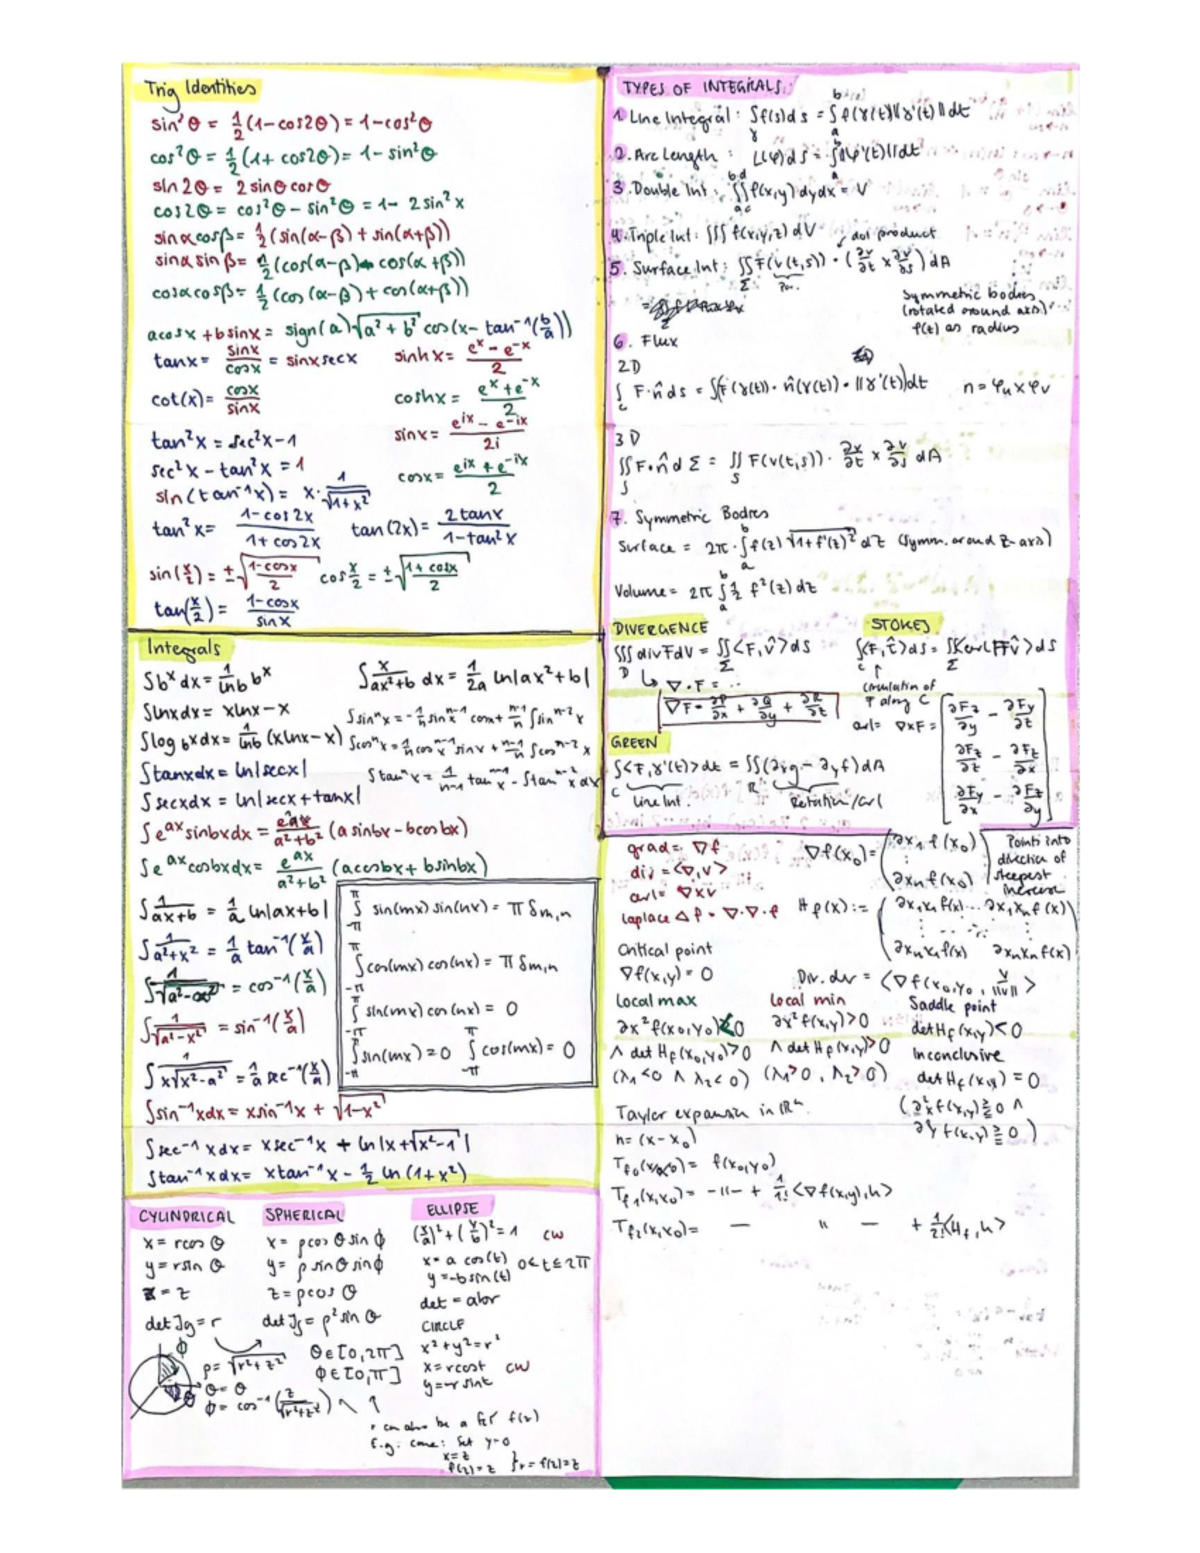 Trig Identities
sin²θ = 1/2 (1-cos2θ) = 1-cos²θ
cos²θ = 1/2 (1+ cos2θ) = 1- sin²θ
sin 2θ = 2 sinθ cosθ
cos2θ = cos²θ - sin²θ = 1- 2 sin²x
sinαcosβ= 1/2 (sin(α-β) + sin(α+β))
sinα sin β= 1/2 (cos(α-β) - cos(α+β))
cosαcosβ= 1/2 (cos(α-β) + cos(α+β))
acosx + bsinx = sign(a)√(a²+b²) cos(x- tan⁻¹(b/a))
tanx = sinx/cosx = sinxsecx
sinhx = (eˣ - e⁻ˣ)/2
cot(x)= cosx/sinx
coshx = (eˣ + e⁻ˣ)/2
sinx = (e^ix - e^-ix)/2i
tan²x = sec²x-1
sec²x - tan²x = 1
cosx = (e^ix + e^-ix)/2
sin(tan⁻¹x) = x· 1/√(1+x²)
tan²x= (1-cos2x)/(1+cos2x)
tan(2x) = 2tanx/(1-tan²x)
sin(x/2) = ±√((1-cosx)/2) cos x/2 = ±√((1+cosx)/2)
tan(x/2) = (1-cosx)/sinx
Integrals
∫bˣdx = 1/lnb bˣ
∫x/(ax²+b) dx = 1/2a ln|ax²+b|
∫lnxdx = xlnx-x
∫sinⁿx = -1/n sinⁿ⁻¹x cosx + (n-1)/n ∫sinⁿ⁻²x
∫log_b xdx = 1/lnb (xlnx-x)
∫cosⁿx = 1/n cosⁿ⁻¹x sinx + (n-1)/n ∫cosⁿ⁻²x
∫tanxdx = ln|secx|
∫tanⁿx = 1/(n-1) tanⁿ⁻¹x - ∫tanⁿ⁻²x dx
∫secxdx = ln|secx+tanx|
∫e^ax sinbxdx = e^ax/(a²+b²) (a sinbx-bcosbx)
∫e^ax cosbxdx = e^ax/(a²+b²) (acosbx+ bsinbx)
∫1/(ax+b) = 1/a ln|ax+b|
∫1/(a²+x²) = 1/a tan⁻¹(x/a)
∫1/√(a²-x²) = cos⁻¹(x/a)
∫1/√(a²-x²) = sin⁻¹(x/a)
∫1/(x√(x²-a²)) = 1/a sec⁻¹(x/a)
∫sin⁻¹xdx = xsin⁻¹x + √(1-x²)
∫sec⁻¹xdx = xsec⁻¹x + ln|x+√(x²-1)|
∫tan⁻¹xdx = xtan⁻¹x - 1/2 ln(1+x²)
π∫-π sin(mx) sin(nx) = π δm,n
π∫-π cos(mx) cos(nx) = π δm,n
π∫-π sin(mx) cos(nx) = 0
π∫-π sin(mx) = 0 π∫-π cos(mx) = 0
CYLINDRICAL
x = rcos θ
y = rsin θ
z = z
det Jg = r
SPHERICAL
x = ρcos θ sin ϕ
y = ρ sinθ sinϕ
z = ρcos θ
det Jg = ρ² sin θ
ϕ
θ
ρ= √(r²+z²)
θ = θ
ϕ = cos⁻¹(z/√(r²+z²))
θ ∈ [0, 2π]
ϕ ∈ [0, π]
ELLIPSE
(x/a)² + (y/b)² = 1 cw
x= a cos(t) 0<t≤2π
y =-bsin(t)
det = abr
CIRCLE
x²+y²=r²
x=rcost cw
y=-rsint
r can also be a fct f(z)
E.g. cone: Set y=0
x=z
f(z)=z }r=f(z)=z
TYPES OF INTEGRALS:
1. Line Integral: ∫γ f(s)ds = b∫a f(γ(t)) ||γ'(t)|| dt
2. Arc Length : L(φ)ds = b∫a ||φ'(t)||dt
3. Double Int: b∫a d∫c f(x,y) dydx = V
4. Triple Int: ∫∫∫ f(x,y,z) dV
dot product
5. Surface Int: ∫∫Σ F(v(t,s)) · (∂v/∂t × ∂v/∂s) dA
Par.
Symmetric bodies
(rotated around axis)
f(t) as radius
6. Flux
2D
∫c F·n̂ ds = ∫(F(γ(t)) · n̂(γ(t)) · ||γ'(t)||)dt n = φu × φv
3D
∫∫S F·n̂ dΣ = ∫∫S F(v(t,s)) · ∂v/∂t × ∂v/∂s dA
7. Symmetric Bodies
Surface = 2π · b∫a f(z) √(1+f'(z)²) dz (Symm. around z-axis)
Volume = 2π b∫a 1/2 f²(z) dz
DIVERGENCE
∫∫∫D divFdV = ∫∫Σ <F, v̂> ds
↳ ∇·F = ..
∇F = ∂P/∂x + ∂Q/∂y + ∂R/∂z
STOKES
∫c <F, t̂> ds = ∫∫Σ <curl F, v̂> ds
Circulation of
F along C
curl= ∇×F = [∂Fz/∂y - ∂Fy/∂z
∂Fz/∂z - ∂Fz/∂x
∂Fy/∂x - ∂Fx/∂y]
GREEN
∫C <F, γ'(t)>dt = ∫∫R (∂xg - ∂yf) dA
Line Int. Rotation/Curl
grad = ∇f
div = <∇, v>
curl = ∇×v
Laplace Δf = ∇·∇·f
∇f(x₀) = (∂x₁f(x₀) ⋮ ∂xnf(x₀))
Points into
direction of
steepest
increase
Hf(x) := (∂x₁x₁f(x) ... ∂x₁xnf(x)
∂xnx₁f(x) ∂xnxnf(x))
Critical point
∇f(x,y) = 0
Dir. der = <∇f(x₀,y₀, v/||v||>
Local max
∂x²f(x₀,y₀)<0
∧ det Hf(x₀,y₀)>0
(λ₁<0 ∧ λ₂<0)
Local min
∂x²f(x,y)>0
∧ detHf(x,y)>0
(λ₁>0, λ₂>0)
Saddle point
detHf(x,y)<0
Inconclusive
det Hf(x,y) = 0
(∂²xf(x,y)≧0 ∧
∂yf(x,y)≧0)
Taylor expansion in ℝⁿ
h = (x-x₀)
Tf0(x,x0)= f(x₀,y₀)
Tf1(x,x₀)= -"- + 1/1! <∇f(x,y),h>
Tf2(x,x₀)= — " — + 1/2! <Hf,h>